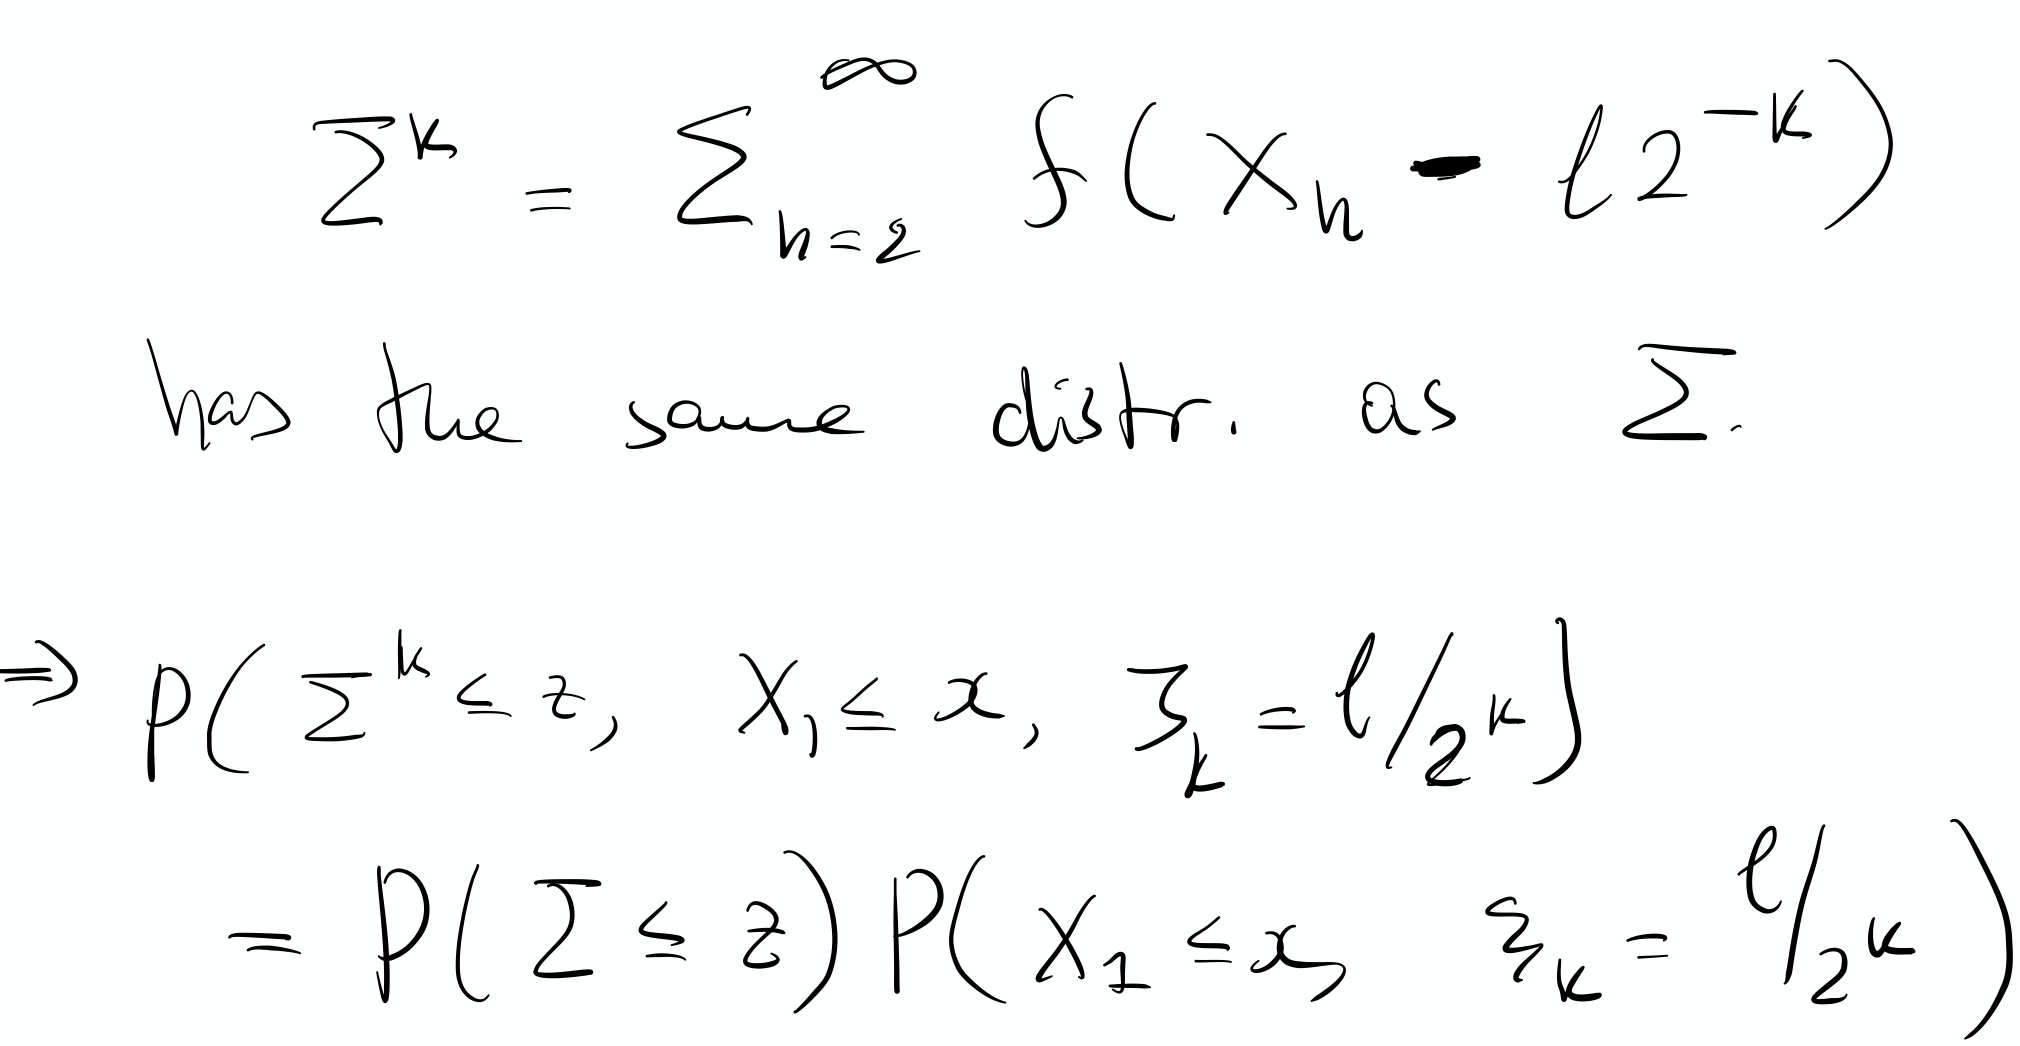 Σ^k = Σ_{n=2}^∞ f(X_n - l2^{-k})
has the same distr. as Σ.
⇒ P(Σ^k ≤ z, X_1 ≤ x, ξ_k = l/2^k)
= P(Σ ≤ z) P(X_1 ≤ x, ξ_k = l/2^k)